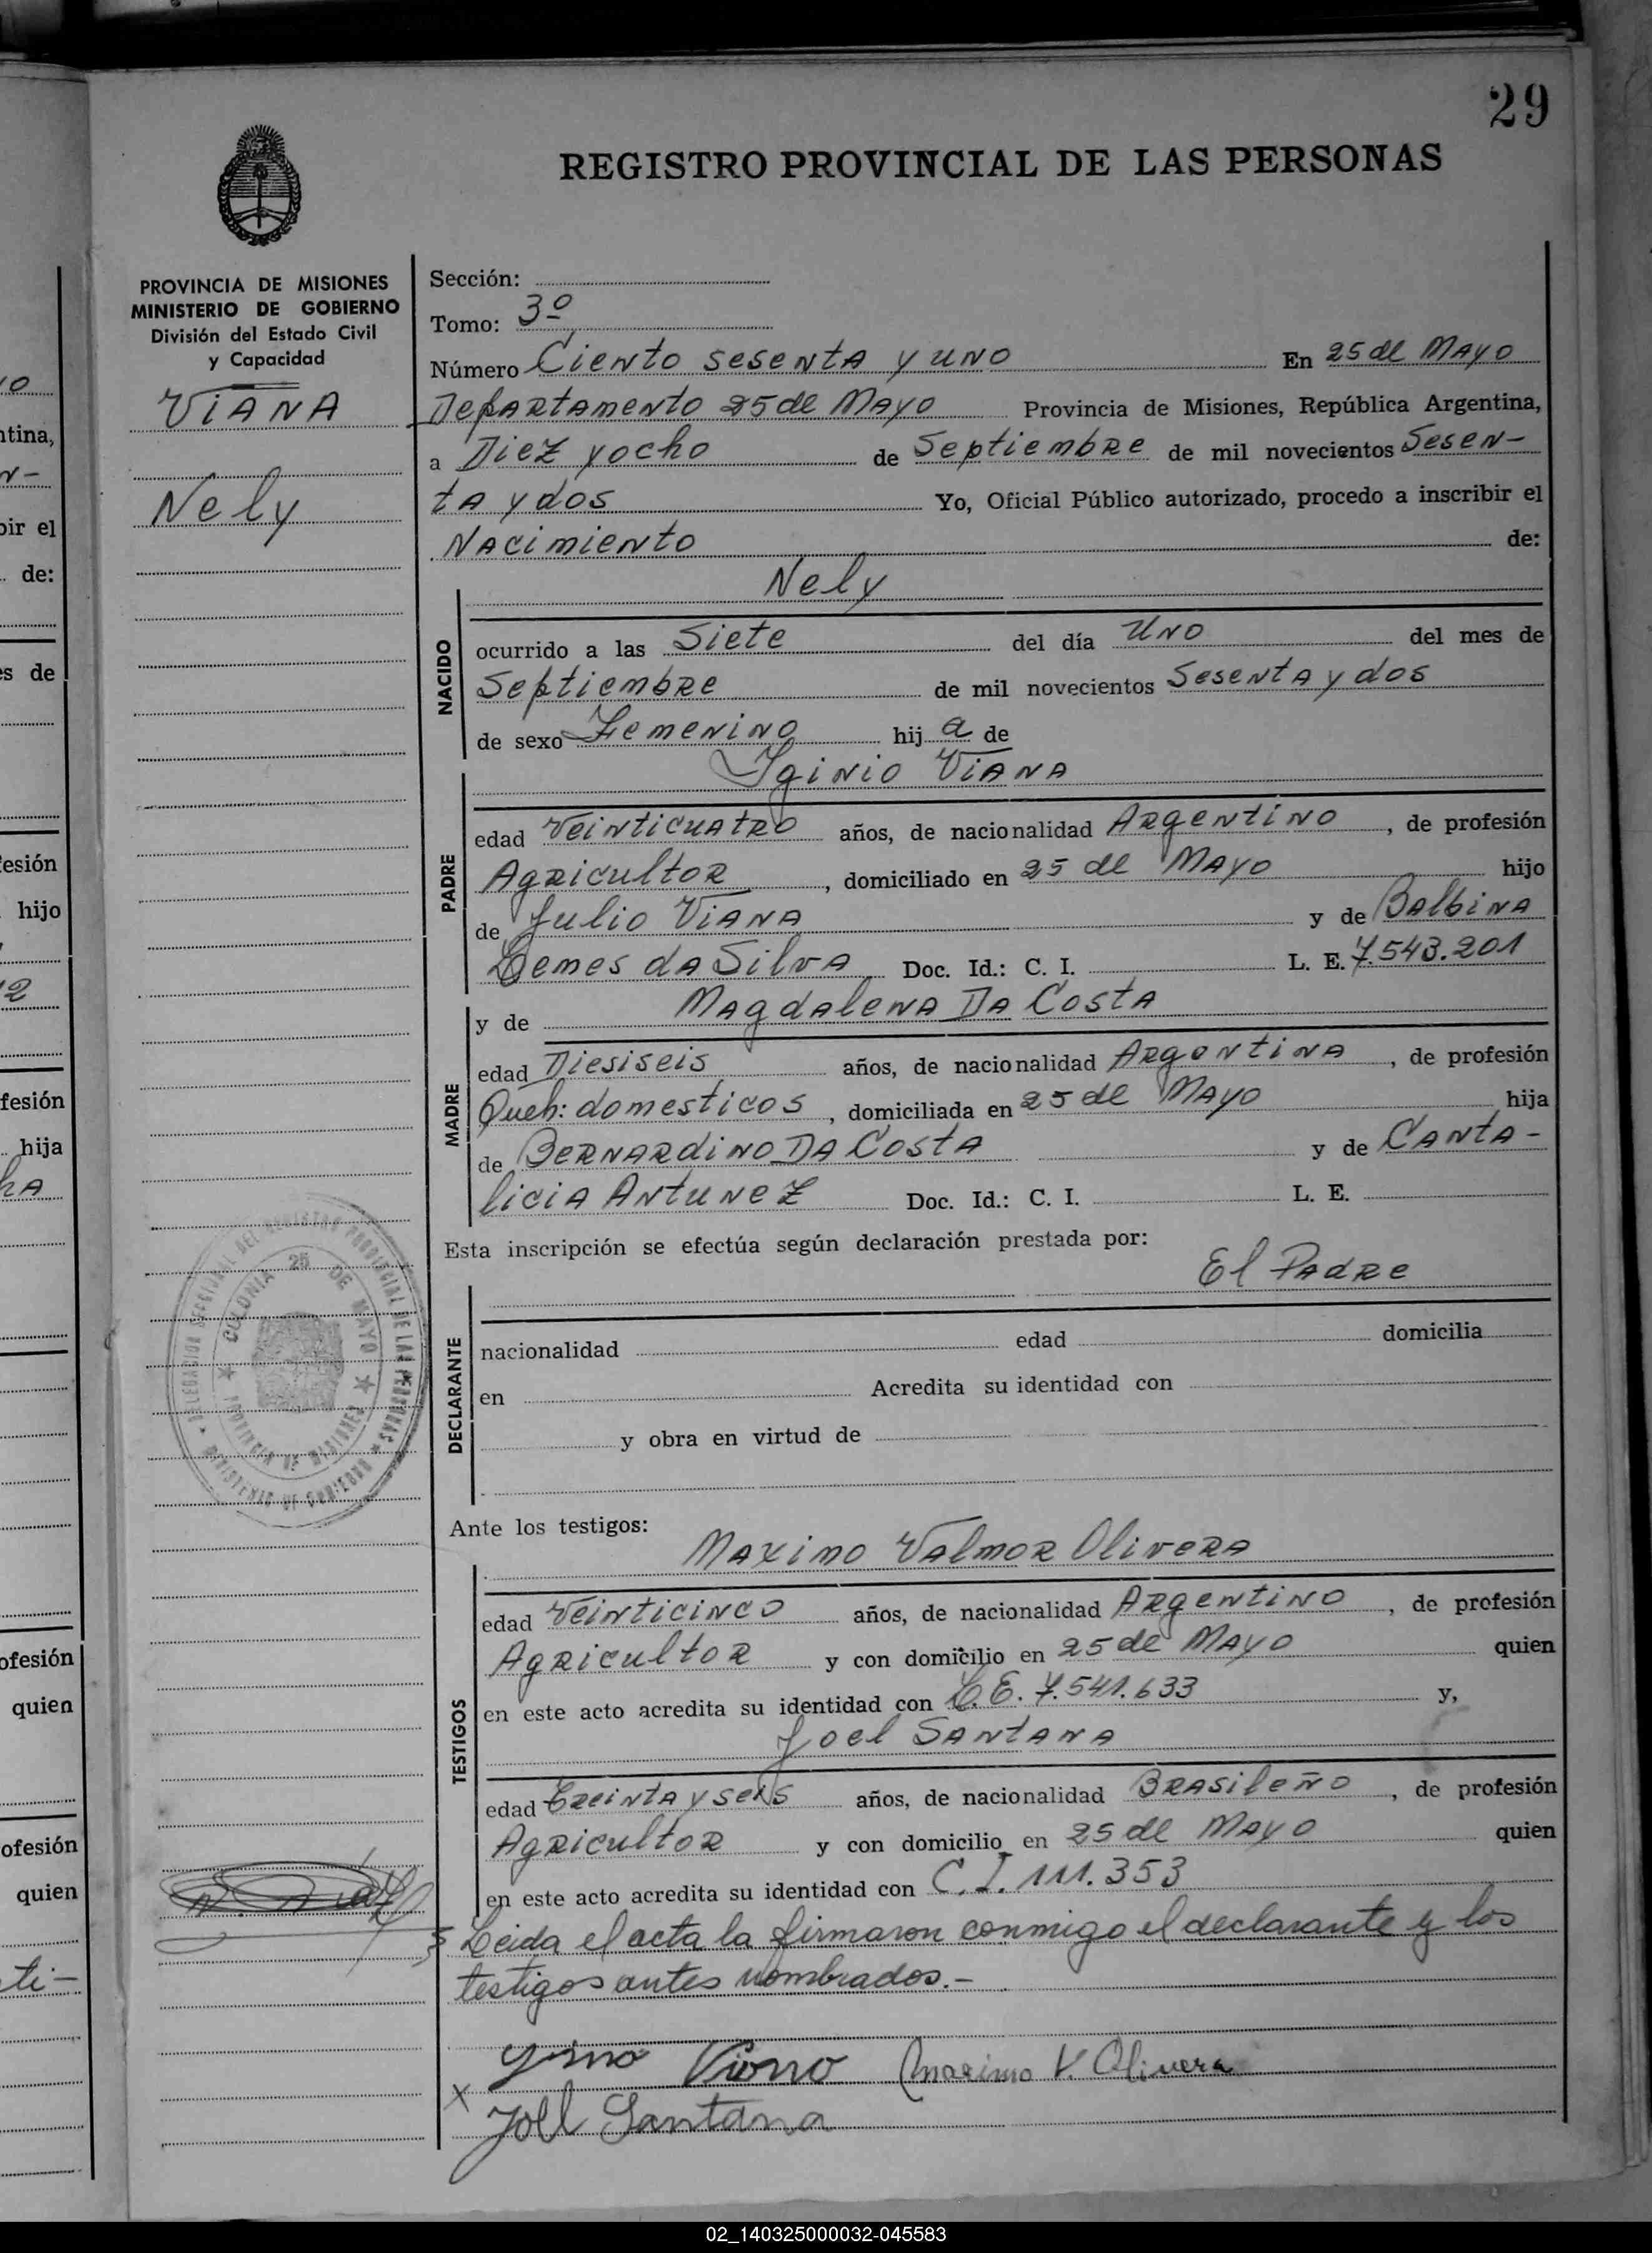 29
REGISTRO PROVINCIAL DE LAS PERSONAS
PROVINCIA DE MISIONES
MINISTERIO DE GOBIERNO
División del Estado Civil
y Capacidad
VIANA
Nely
Sección:
Tomo: 3º
Número Ciento sesenta y uno En 25 de Mayo
Departamento 25 de Mayo Provincia de Misiones, República Argentina,
a Diez y ocho de Septiembre de mil novecientos Sesen-
ta y dos Yo, Oficial Público autorizado, procedo a inscribir el
Nacimiento de:
Nely
NACIDO
ocurrido a las Siete del día Uno del mes de
Septiembre de mil novecientos Sesenta y dos
de sexo Femenino hij a de
Iginio Viana
PADRE
edad Veinticuatro años, de nacionalidad Argentino, de profesión
Agricultor, domiciliado en 25 de Mayo hijo
de Julio Viana y de Balbina
Lemes da Silva Doc. Id.: C. I. L. E. 7.543.201
y de Magdalena Da Costa
MADRE
edad Diesiseis años, de nacionalidad Argentina, de profesión
Queh: domesticos, domiciliada en 25 de Mayo hija
de Bernardino Da Costa y de Canta-
licia Antunez Doc. Id.: C. I. L. E.
Esta inscripción se efectúa según declaración prestada por:
El Padre
DECLARANTE
nacionalidad edad domicilia
en Acredita su identidad con
y obra en virtud de
DELEGACION SECCIONAL DEL REGISTRO PROVINCIAL DE LAS PERSONAS
MINISTERIO DE GOBIERNO
COLONIA 25 DE MAYO
PROVINCIA DE MISIONES
Ante los testigos:
Maximo Valmor Olivera
TESTIGOS
edad Veinticinco años, de nacionalidad Argentino, de profesión
Agricultor y con domicilio en 25 de Mayo quien
en este acto acredita su identidad con L.E. 7.541.633 y,
Joel Santana
edad Treinta y seis años, de nacionalidad Brasileño, de profesión
Agricultor y con domicilio en 25 de Mayo quien
en este acto acredita su identidad con C.I. 111.353
Leida el acta la firmaron conmigo el declarante y los
testigos antes nombrados.-
Viono Maximo V. Olivera
X Joel Santana
02_140325000032-045583